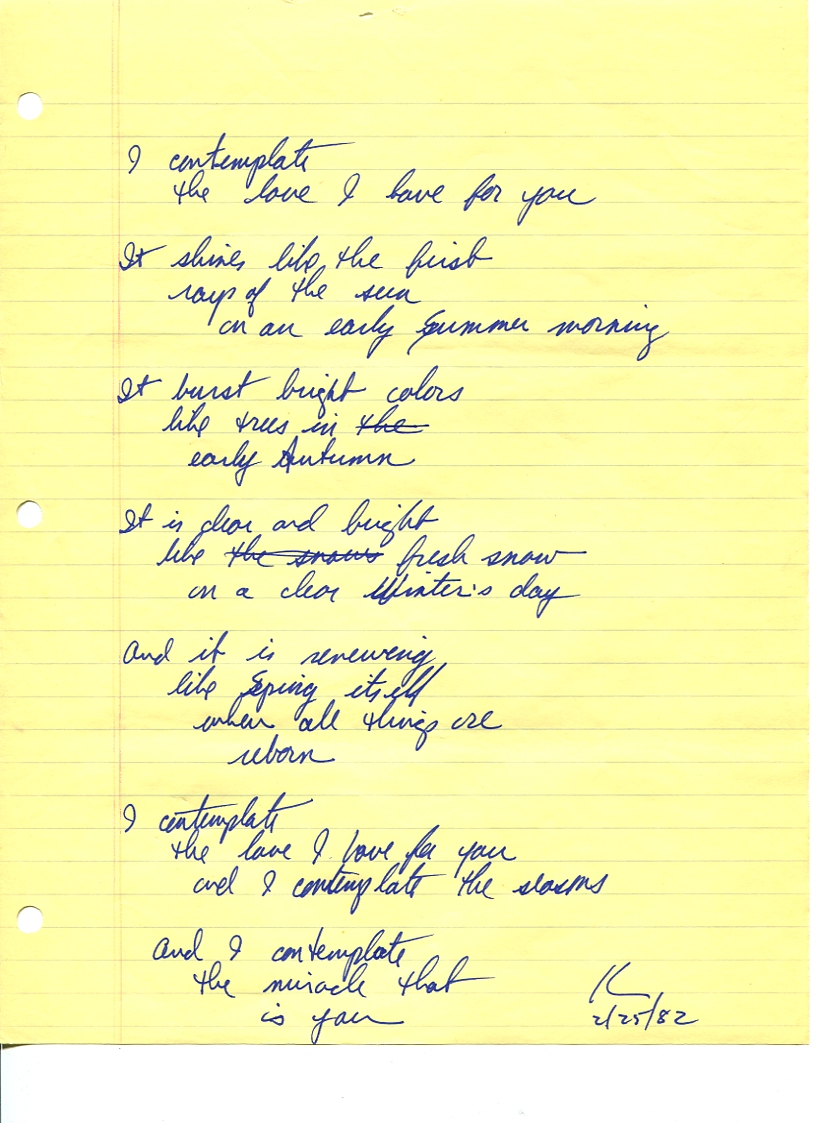 I contemplate
the love I have for you
It shines like the first
rays of the sun
on an early Summer morning
It burst bright colors
like trees in the
early Autumn
It is clear and bright
like the snows fresh snow
on a clear Winter's day
And it is renewing
like Spring itself
when all things are
reborn
I contemplate
the love I have for you
and I contemplate the seasons
And I contemplate
the miracle that
is you
K
2/25/82